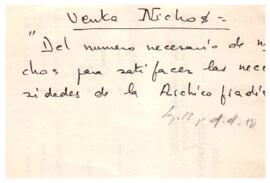 Venta Nichos =
"Del numero necesario de ni
chos para satisfacer las nece
sidades de la Archicofradía